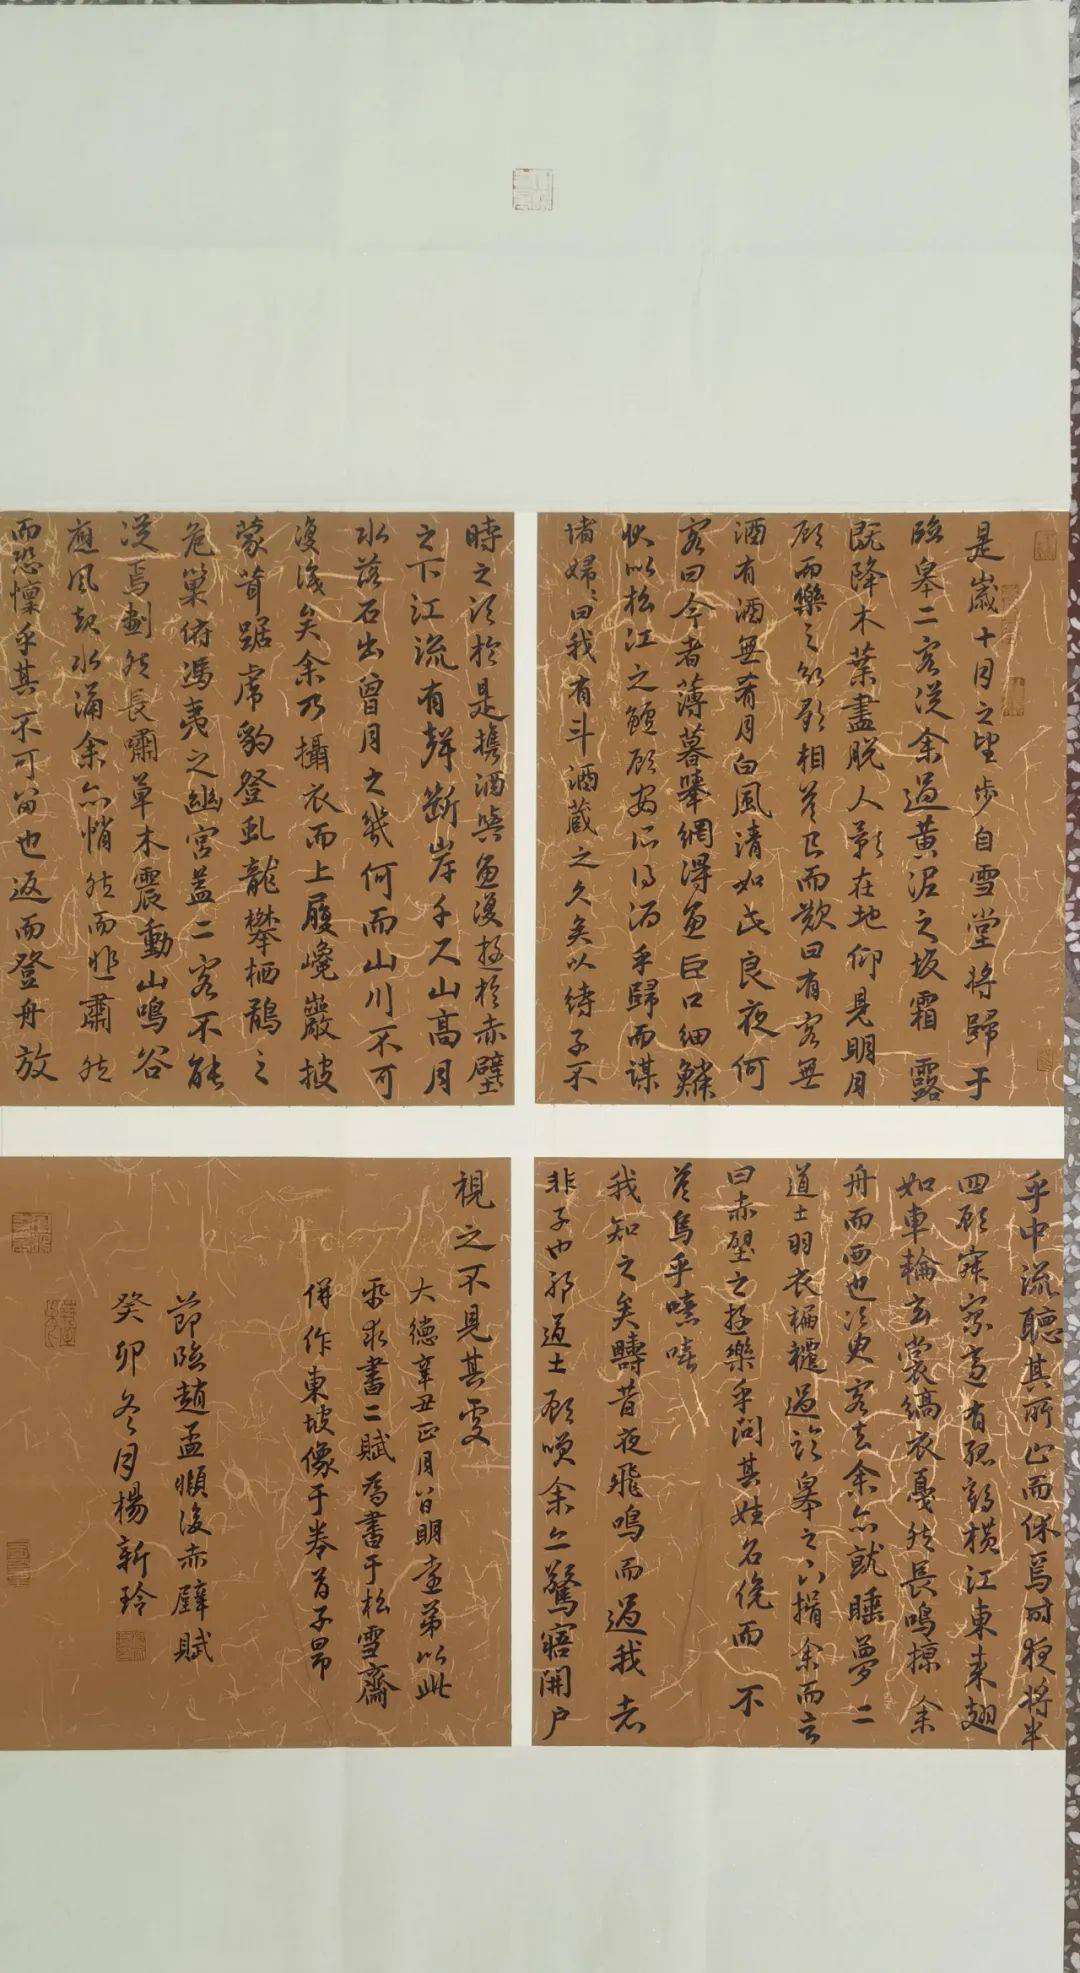 是歲十月之望步自雪堂將歸于
臨皋二客從余過黃泥之坂霜露
既降木葉盡脫人影在地仰見明月
顧而樂之行歌相答已而歎曰有客無
酒有酒無肴月白風清如此良夜何
客曰今者薄暮舉網得魚巨口細鱗
狀似松江之鱸顧安所得酒乎歸而謀
諸婦婦曰我有斗酒藏之久矣以待子不
時之須於是攜酒與魚復遊於赤壁
之下江流有聲斷岸千尺山高月
水落石出曾月之幾何而山川不可
復識矣余乃攝衣而上履巉巖披
蒙茸踞虎豹登虬龍攀栖鶻之
危巢俯馮夷之幽宮蓋二客不能
從焉劃然長嘯草木震動山鳴谷
應風起水涌余亦悄然而悲肅然
而恐懍乎其不可留也返而登舟放
乎中流聽其所止而休焉時夜將半
四顧寂寥適有孤鶴橫江東來翅
如車輪玄裳縞衣戛然長鳴掠余
舟而西也須臾客去余亦就睡夢二
道士羽衣蹁躚過臨皋之下揖余而言
曰赤壁之遊樂乎問其姓名俛而不
答烏乎噫嘻
我知之矣疇昔夜飛鳴而過我者
非子也邪道士顧笑余亦驚寤開戶
視之不見其處
大德辛丑正月八日明遠弟以此
紙求書二賦為書于松雪齋
併作東坡像于卷首子昂
節臨趙孟頫後赤壁賦
癸卯冬月楊新玲